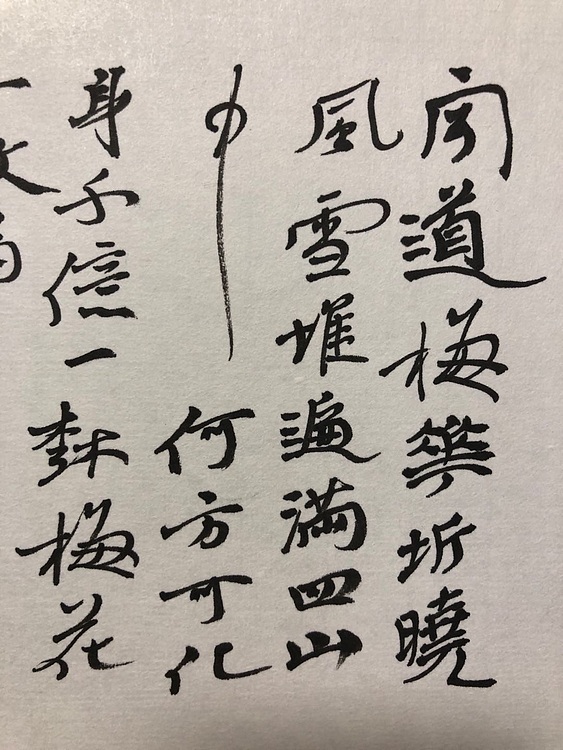 聞道梅華坼曉
風雪堆遍滿四山
中何方可化
身千億一樹梅花